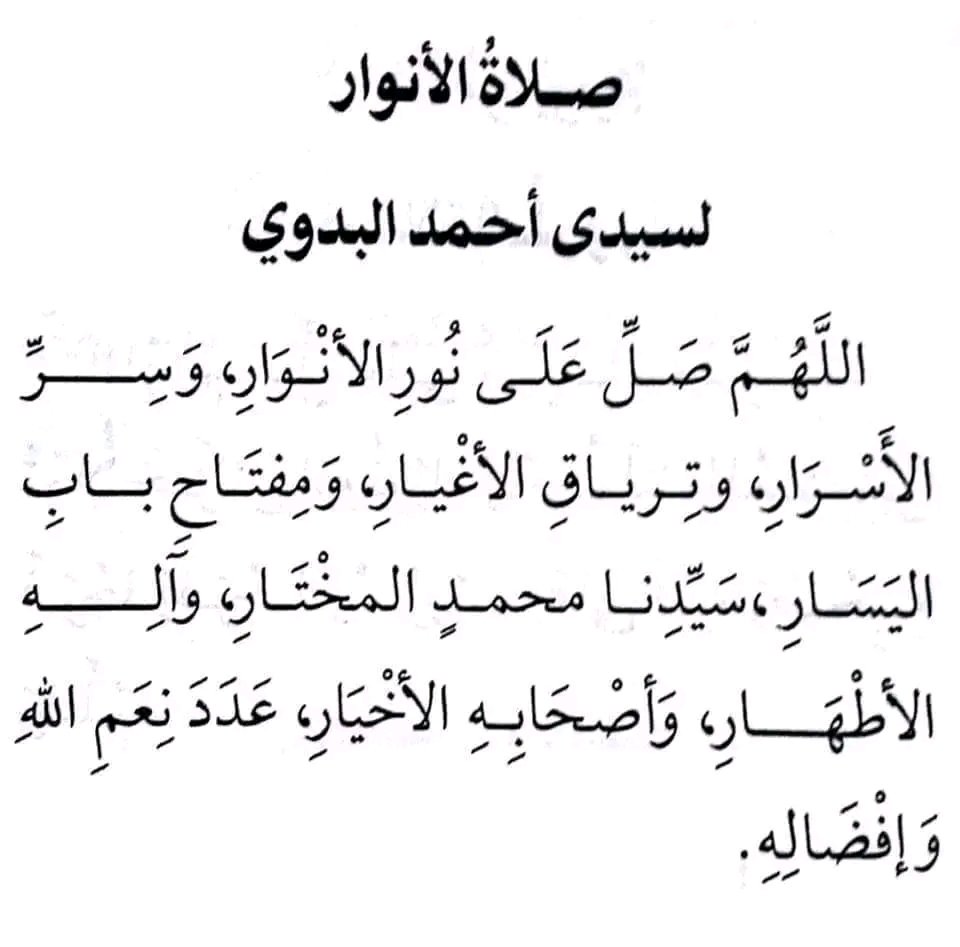 صلاةُ الأنوار
لسيدى أحمد البدوي
اللَّهُمَّ صَلِّ عَلَى نُورِ الأنْوَارِ، وَسِرِّ
الأَسْرَارِ، وتِرياقِ الأغْيارِ، وَمِفتَاحِ بابِ
اليَسَارِ ،سَيِّدِنا محمدٍ المخْتَارِ، وآلِهِ
الأطْهَارِ، وَأصْحَابِهِ الأخْيَارِ، عَدَدَ نِعَمِ اللهِ
وَإفْضَالِهِ.